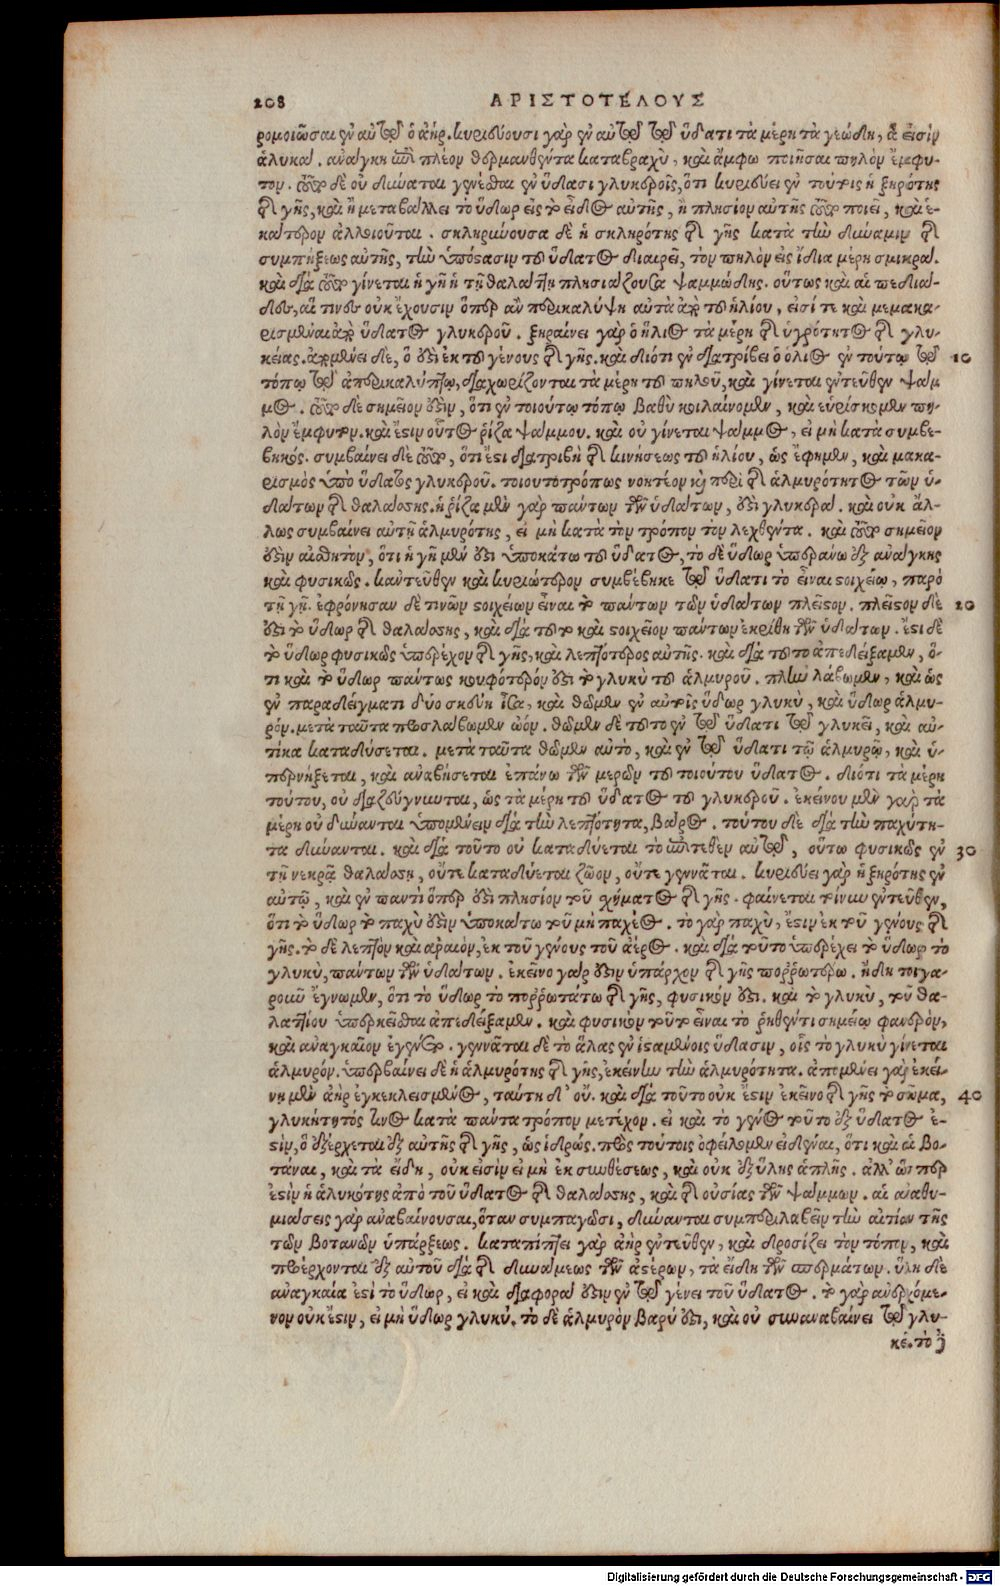 208 ΑΡΙΣΤΟΤΕΛΟΥΣ
ρομοιῶσαι ἐν αὐτῷ ὁ ἀήρ. κυριεύουσι γὰρ ἐν αὐτῷ τῷ ὕδατι τὰ μέρη τὰ γεώδη, ἃ εἰσὶν
ἁλυκά. ἀνάγκη πλέον θερμανθέντα καταβραχὺ, καὶ ἄμφω ποιῆσαι πηλὸν ἔμφυ-
τον. τοῦτο δὲ οὐ δύναται γενέσθαι ἐν ὕδασι γλυκεροῖς, ὅτι κυριεύει ἐν τούτοις ἡ ξηρότης
τῆς γῆς, καὶ ἢ μεταβάλλει τὸ ὕδωρ εἰς τὸ εἶδος αὐτῆς, ἢ πλησίον αὐτῆς τοῦτο ποιεῖ, καὶ ἑ-
κάτερον ἀλλοιοῦται. σκληρύνουσα δὲ ἡ σκληρότης τῆς γῆς κατὰ τὴν δύναμιν τῆς
συμπήξεως αὐτῆς, τὴν ὑπόστασιν τοῦ ὕδατος διαιρεῖ, τὸν πηλὸν εἰς ἴδια μέρη σμικρά.
καὶ διὰ τοῦτο γίνεται ἡ γῆ ἡ τῇ θαλάττῃ πλησιάζουσα ψαμμώδης. οὕτως καὶ αἱ πεδιά-
δες, αἵ τινες οὐκ ἔχουσιν ὅπερ ἂν περικαλύψῃ αὐτὰ ἀπὸ τοῦ ἡλίου, εἰσί τε καὶ μεμακα-
ρισμέναι ἀπὸ ὕδατος γλυκεροῦ. ξηραίνει γὰρ ὁ ἥλιος τὰ μέρη τῆς ὑγρότητος τῆς γλυ-
κείας. ἀπομένει δὲ, ὅ ἐστι ἐκ τοῦ γένους τῆς γῆς. καὶ διότι ἐν διατρίβει ὁ ὅλιος ἐν τούτῳ τῷ 10
τόπῳ τῷ ἀπερικαλύπτῳ, διαχωρίζονται τὰ μέρη τοῦ πηλοῦ, καὶ γίνεται ἐντεῦθεν ψάμ
μος. τοῦτο δὲ σημεῖον ἐστιν, ὅτι ἐν τοιούτῳ τόπῳ βαθὺ κοιλαίνομεν, καὶ εὑρίσκομεν πη-
λὸν ἔμφυτον. καὶ ἔστιν οὗτος ῥίζα ψάμμου. καὶ οὐ γίνεται ψάμμος, εἰ μὴ κατὰ συμβε-
βηκός. συμβαίνει δὲ τοῦτο, ὅτι ἔστι διατριβὴ τῆς κινήσεως τοῦ ἡλίου, ὡς ἔφημεν, καὶ μακα-
ρισμὸς ὑπὸ ὕδατος γλυκεροῦ. τοιουτοτρόπως νοητέον κỳ περὶ τῆς ἁλμυρότητος τῶν ὑ-
δάτων τῆς θαλάσσης. ἡ ῥίζα μὲν γὰρ πάντων τῶν ὑδάτων, ἐστι γλυκερά. καὶ οὐκ ἄλ-
λως συμβαίνει αὐτῇ ἁλμυρότης, εἰ μὴ κατὰ τὸν τρόπον τὸν λεχθέντα. καὶ τοῦτο σημεῖον
ἐστιν αἰσθητὸν, ὅτι ἡ γῆ μέν ἐστι ὑποκάτω τοῦ ὕδατος, τὸ δὲ ὕδωρ ὑπεράνω ἐξ ἀνάγκης
καὶ φυσικῶς. κἀντεῦθεν καὶ κυριώτερον συμβέβηκε τῷ ὕδατι τὸ εἶναι στοιχείῳ, παρὸ
τῇ γῇ. ἐφρόνησαν δὲ τινῶν στοιχείων εἶναι τὸ πάντων τῶν ὑδάτων πλεῖστον. πλεῖστον δὲ 20
ἐστι τὸ ὕδωρ τῆς θαλάσσης, καὶ διὰ τοῦτο καὶ στοιχεῖον πάντων ἐκρίθη τῶν ὑδάτων. ἔστι δὲ
τὸ ὕδωρ φυσικῶς ὑπερέχον τῆς γῆς, καὶ λεπτότερος αὐτῆς. καὶ διὰ τοῦτο ἀπεδείξαμεν, ὅ-
τι καὶ τὸ ὕδωρ πάντως κουφότερόν ἐστι τὸ γλυκὺ τοῦ ἁλμυροῦ. πλὴν λάβωμεν, καὶ ὡς
ἐν παραδείγματι δύο σκεύη ἶσα, καὶ θῶμεν ἐν αὐτοῖς ὕδωρ γλυκὺ, καὶ ὕδωρ ἁλμυ-
ρόν. μετὰ ταῦτα προσλάβωμεν ὠόν. θῶμεν δὲ τοῦτο ἐν τῷ ὕδατι τῷ γλυκεῖ, καὶ αὐ-
τίκα καταδύσεται. μετὰ ταῦτα θῶμεν αὐτὸ, καὶ ἐν τῷ ὕδατι τῷ ἁλμυρῷ, καὶ ὑ-
περνήξεται, καὶ ἀναβήσεται ἐπάνω τῶν μερῶν τοῦ τοιούτου ὕδατος. διότι τὰ μέρη
τούτου, οὐ διαζεύγνυται, ὡς τὰ μέρη τοῦ ὕδατος τοῦ γλυκεροῦ. ἐκείνου μὲν γὰρ τὰ
μέρη οὐ δύνανται ὑπομένειν διὰ τὴν λεπτότητα, βάρος. τούτου δὲ διὰ τὴν παχύτη-
τα δύνανται. καὶ διὰ τοῦτο οὐ καταδύεται τὸ ἐπιτεθὲν αὐτῷ, οὕτω φυσικῶς ἐν 30
τῇ νεκρᾷ θαλάσσῃ, οὔτε καταδύεται ζῶον, οὔτε γεννᾶται. κυριεύει γὰρ ἡ ξηρότης ἐν
αὐτῷ, καὶ ἐν παντὶ ὅπερ ἐστὶ πλησίον τοῦ σχήματος τῆς γῆς. φαίνεται τοίνυν ἐντεῦθεν,
ὅτι τὸ ὕδωρ τὸ παχὺ ἐστιν ὑποκάτω τοῦ μὴ παχέος. τὸ γὰρ παχὺ, ἔστιν ἐκ τοῦ γένους τῆς
γῆς. τὸ δὲ λεπτὸν καὶ ἀραιὸν, ἐκ τοῦ γένους τοῦ ἀέρος. καὶ διὰ τοῦτο ὑπερέχει τὸ ὕδωρ τὸ
γλυκὺ, πάντων τῶν ὑδάτων. ἐκεῖνο γάρ ἐστιν ὑπάρχον τῆς γῆς πορῤωτέρω. ἤδη τοιγα-
ροῦν ἔγνωμεν, ὅτι τὸ ὕδωρ τὸ ποῤῥωτάτω τῆς γῆς, φυσικόν ἐστι. καὶ τὸ γλυκὺ, τοῦ θα-
λαττίου ὑπερκεῖσθαι ἀπεδείξαμεν. καὶ φυσικὸν τοῦτο εἶναι τὸ ῥηθέντι σημείῳ φανερὸν,
καὶ ἀναγκαῖον ἐγένετο. γεννᾶται δὲ τὸ ἅλας ἐν ἱσταμένοις ὕδασιν, οἷς τὸ γλυκὺ γίνεται
ἁλμυρόν. ὑπερβαίνει δὲ ἡ ἁλμυρότης τῆς γῆς, ἐκείνην τὴν ἁλμυρότητα. ἀπομένει γὰρ ἐκεί-
νῃ μὲν ἀὴρ ἐγκεκλεισμένος, ταύτῃ δ' οὔ. καὶ διὰ τοῦτο οὐκ ἔστιν ἐκεῖνο τῆς γῆς τὸ σῶμα, 40
γλυκήτητός τινος κατὰ πάντα τρόπον μετέχον. εἰ καὶ τὸ γένος τοῦτο ἐξ ὕδατος ἐ-
στὶν, ὃ ἐξέρχεται ἐξ αὐτῆς τῆς γῆς, ὡς ἱδρώς. πρὸς τούτοις ὀφείλομεν εἰδέναι, ὅτι καὶ αἱ βο-
τάναι, καὶ τὰ εἴδη, οὐκ εἰσὶν εἰ μὴ ἐκ συνθέσεως, καὶ οὐκ ἐξ ὕλης ἁπλῆς. ἀλλ' ὥσπερ
ἐστὶν ἡ ἁλυκότης ἀπὸ τοῦ ὕδατος τῆς θαλάσσης, καὶ τῆς οὐσίας τῶν ψάμμων. αἱ ἀναθυ-
μιάσεις γὰρ ἀναβαίνουσαι, ὅταν συμπαγῶσι, δύνανται συμπεριλαβεῖν τὴν αἰτίαν τῆς
τῶν βοτανῶν ὑπάρξεως. καταπίπτει γὰρ ἀὴρ ἐντεῦθεν, καὶ δροσίζει τὸν τόπον, καὶ
προέρχονται ἐξ αὐτοῦ διὰ τῆς δυνάμεως τῶν ἀστέρων, τὰ εἴδη τῶν σπερμάτων. ὕλη δὲ
ἀναγκαία ἐστὶ τὸ ὕδωρ, εἰ καὶ διαφορά ἐστιν ἐν τῷ γένει τοῦ ὕδατος. τὸ γὰρ ἀνερχόμε-
νον οὐκ ἔστιν, εἰ μὴ ὕδωρ γλυκύ. τὸ δὲ ἁλμυρὸν βαρύ ἐστι, καὶ οὐ συναναβαίνει τῷ γλυ-
κέ. τὸ
Digitalisierung gefördert durch die Deutsche Forschungsgemeinschaft - DFG